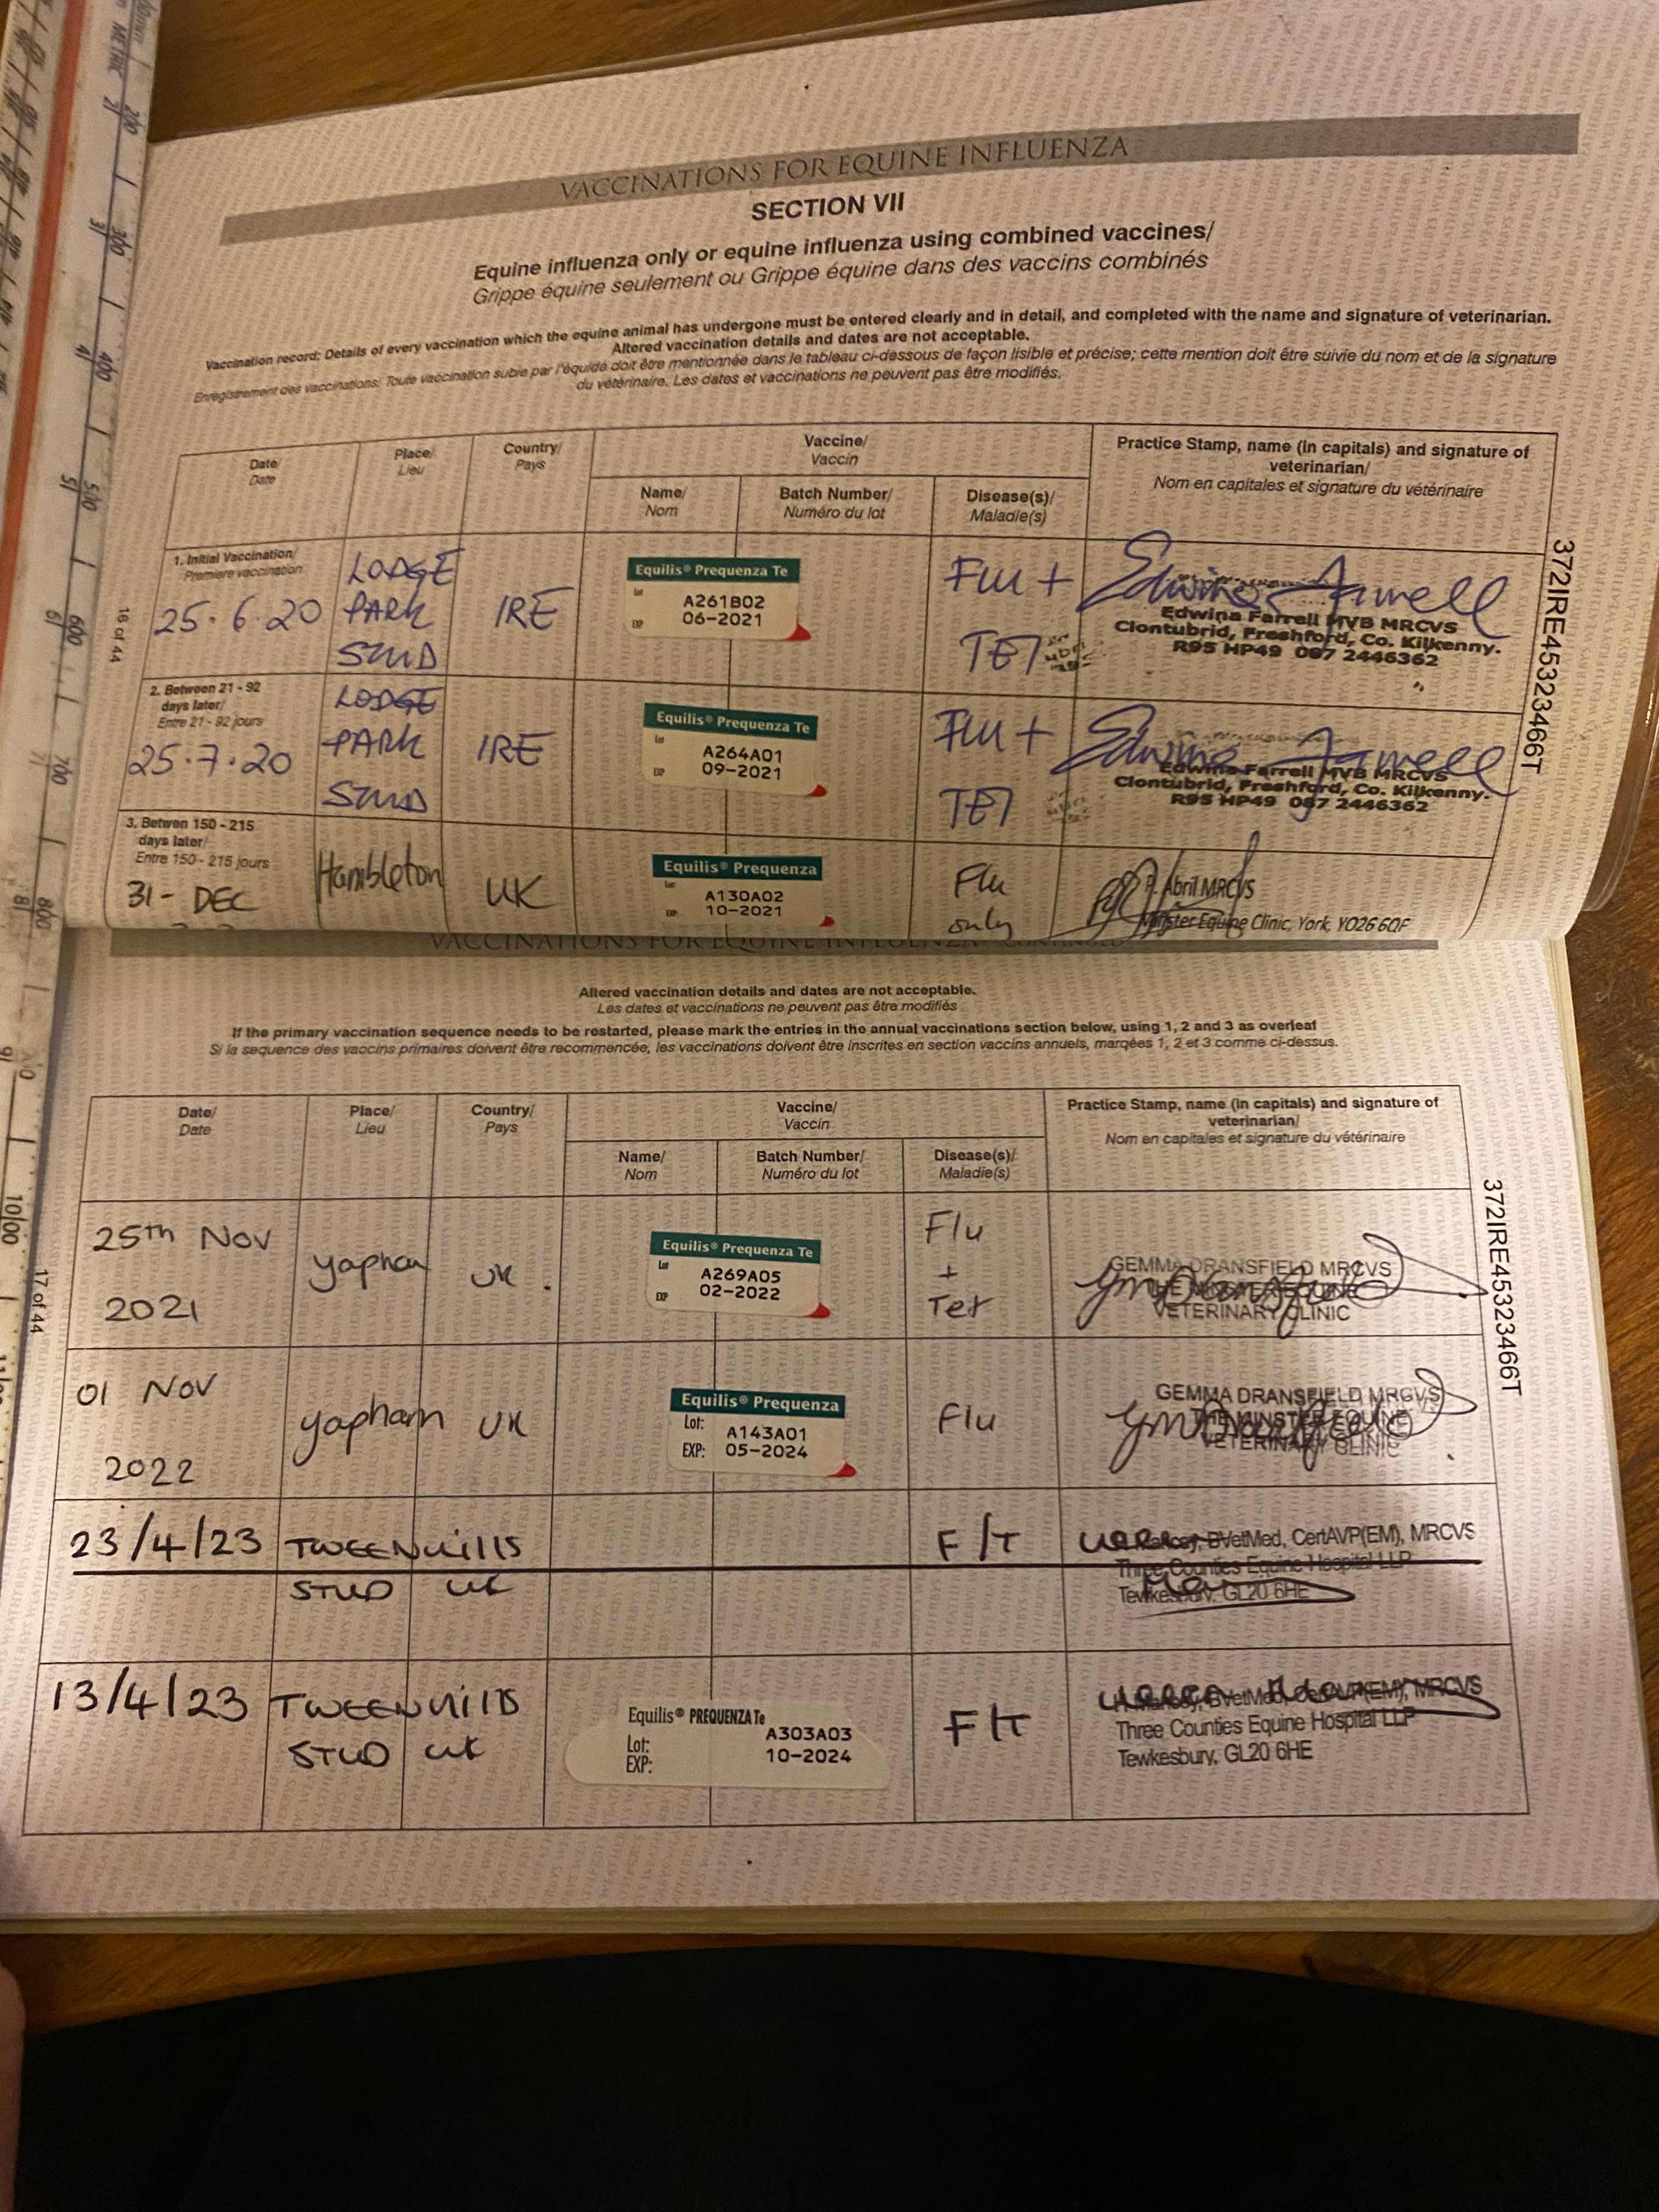 VACCINATIONS FOR EQUINE INFLUENZA
SECTION VII
Equine influenza only or equine influenza using combined vaccines/
Grippe équine seulement ou Grippe équine dans des vaccins combinés
Vaccination record: Details of every vaccination which the equine animal has undergone must be entered clearly and in detail, and completed with the name and signature of veterinarian.
Altered vaccination details and dates are not acceptable.
Enregistrement des vaccinations: Toute vaccination subie par l'équidé doit être mentionnée dans le tableau ci-dessous de façon lisible et précise; cette mention doit être suivie du nom et de la signature
du vétérinaire. Les dates et vaccinations ne peuvent pas être modifiés.
Date/
Date
Place/
Lieu
Country/
Pays
Vaccine/
Vaccin
Name/
Nom
Batch Number/
Numéro du lot
Disease(s)/
Maladie(s)
Practice Stamp, name (in capitals) and signature of
veterinarian/
Nom en capitales et signature du vétérinaire
1. Initial Vaccination/
Premiere vaccination
25.6.20
LODGE
PARK
STUD
IRE
Equilis® Prequenza Te
Lot A261B02
EXP 06-2021
Flu +
TET
Edwina Farrell
Edwina Farrell MVB MRCVS
Clontubrid, Freshford, Co. Kilkenny.
R95 HP49 087 2446362
2. Between 21 - 92
days later/
Entre 21 - 92 jours
25.7.20
LODGE
PARK
STUD
IRE
Equilis® Prequenza Te
Lot A264A01
EXP 09-2021
Flu +
TET
Edwina Farrell
Edwina Farrell MVB MRCVS
Clontubrid, Freshford, Co. Kilkenny.
R95 HP49 087 2446362
3. Betwen 150 - 215
days later/
Entre 150 - 215 jours
31 - DEC
Hambleton
UK
Equilis® Prequenza
Lot: A130A02
EXP: 10-2021
Flu
only
Abril MRCVS
Minster Equine Clinic, York, YO26 6QF
372IRE45323466T
16 of 44
VACCINATIONS FOR EQUINE INFLUENZA - CONTINUED
Altered vaccination details and dates are not acceptable.
Les dates et vaccinations ne peuvent pas être modifiés
If the primary vaccination sequence needs to be restarted, please mark the entries in the annual vaccinations section below, using 1, 2 and 3 as overleaf
Si la sequence des vaccins primaires doivent être recommencée, les vaccinations doivent être inscrites en section vaccins annuels, marqées 1, 2 et 3 comme ci-dessus.
Date/
Date
Place/
Lieu
Country/
Pays
Vaccine/
Vaccin
Name/
Nom
Batch Number/
Numéro du lot
Disease(s)/
Maladie(s)
Practice Stamp, name (in capitals) and signature of
veterinarian/
Nom en capitales et signature du vétérinaire
25th Nov
2021
Yapham
UK.
Equilis® Prequenza Te
Lot A269A05
EXP 02-2022
Flu
+
Tet
GEMMA DRANSFIELD MRCVS
THE MINSTER EQUINE
VETERINARY CLINIC
01 Nov
2022
Yapham
UK
Equilis® Prequenza
Lot: A143A01
EXP: 05-2024
Flu
GEMMA DRANSFIELD MRCVS
THE MINSTER EQUINE
VETERINARY CLINIC
23/4/23
TWEENHILLS
STUD UK
F/T
BVetMed, CertAVP(EM), MRCVS
Three Counties Equine Hospital LLP
Tewkesbury, GL20 6HE
13/4/23
TWEENHILLS
STUD UK
Equilis® PREQUENZA Te
Lot: A303A03
EXP: 10-2024
F/T
BVetMed, CertAVP(EM), MRCVS
Three Counties Equine Hospital LLP
Tewkesbury, GL20 6HE
372IRE45323466T
17 of 44